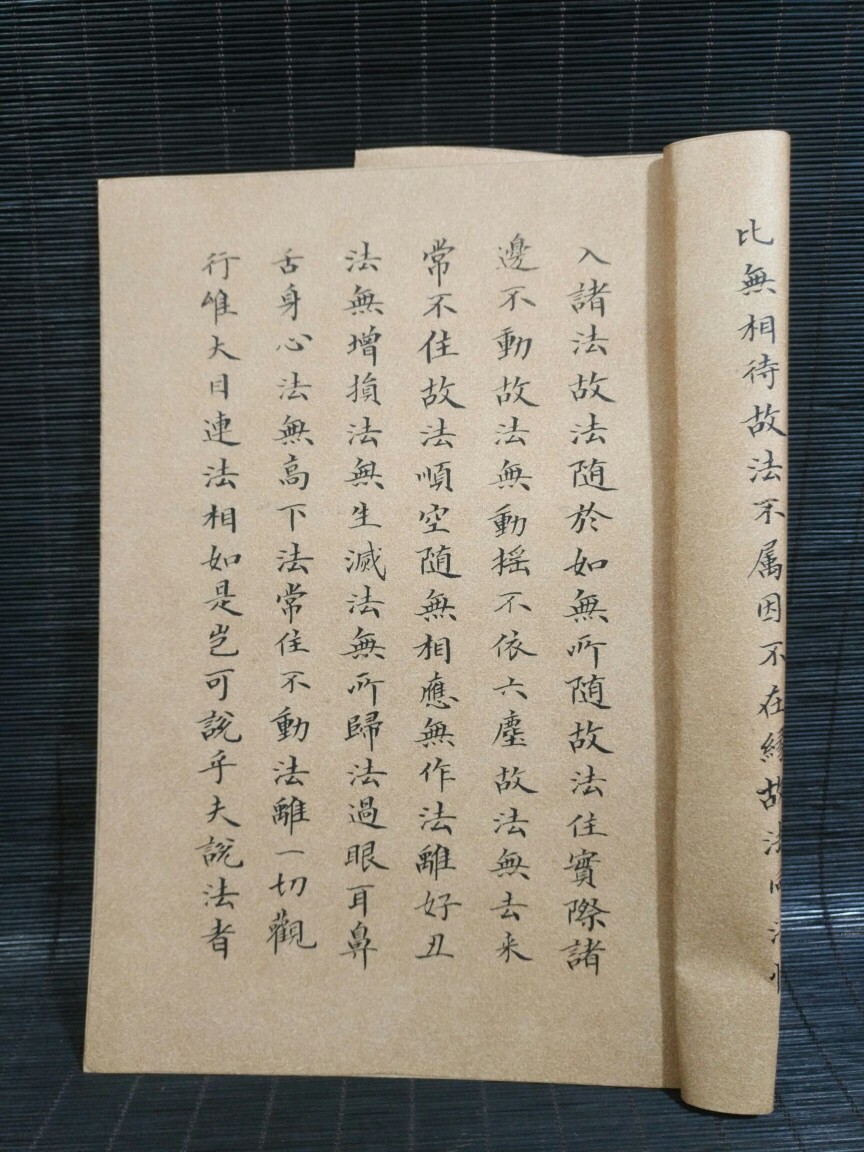 比無相待故法不属因不在緣故法同法性
入諸法故法隨於如無所隨故法住實際諸
邊不動故法無動摇不依六塵故法無去来
常不住故法順空隨無相應無作法離好丑
法無增損法無生滅法無所歸法過眼耳鼻
舌身心法無高下法常住不動法離一切觀
行唯大目連法相如是岂可說乎夫說法者